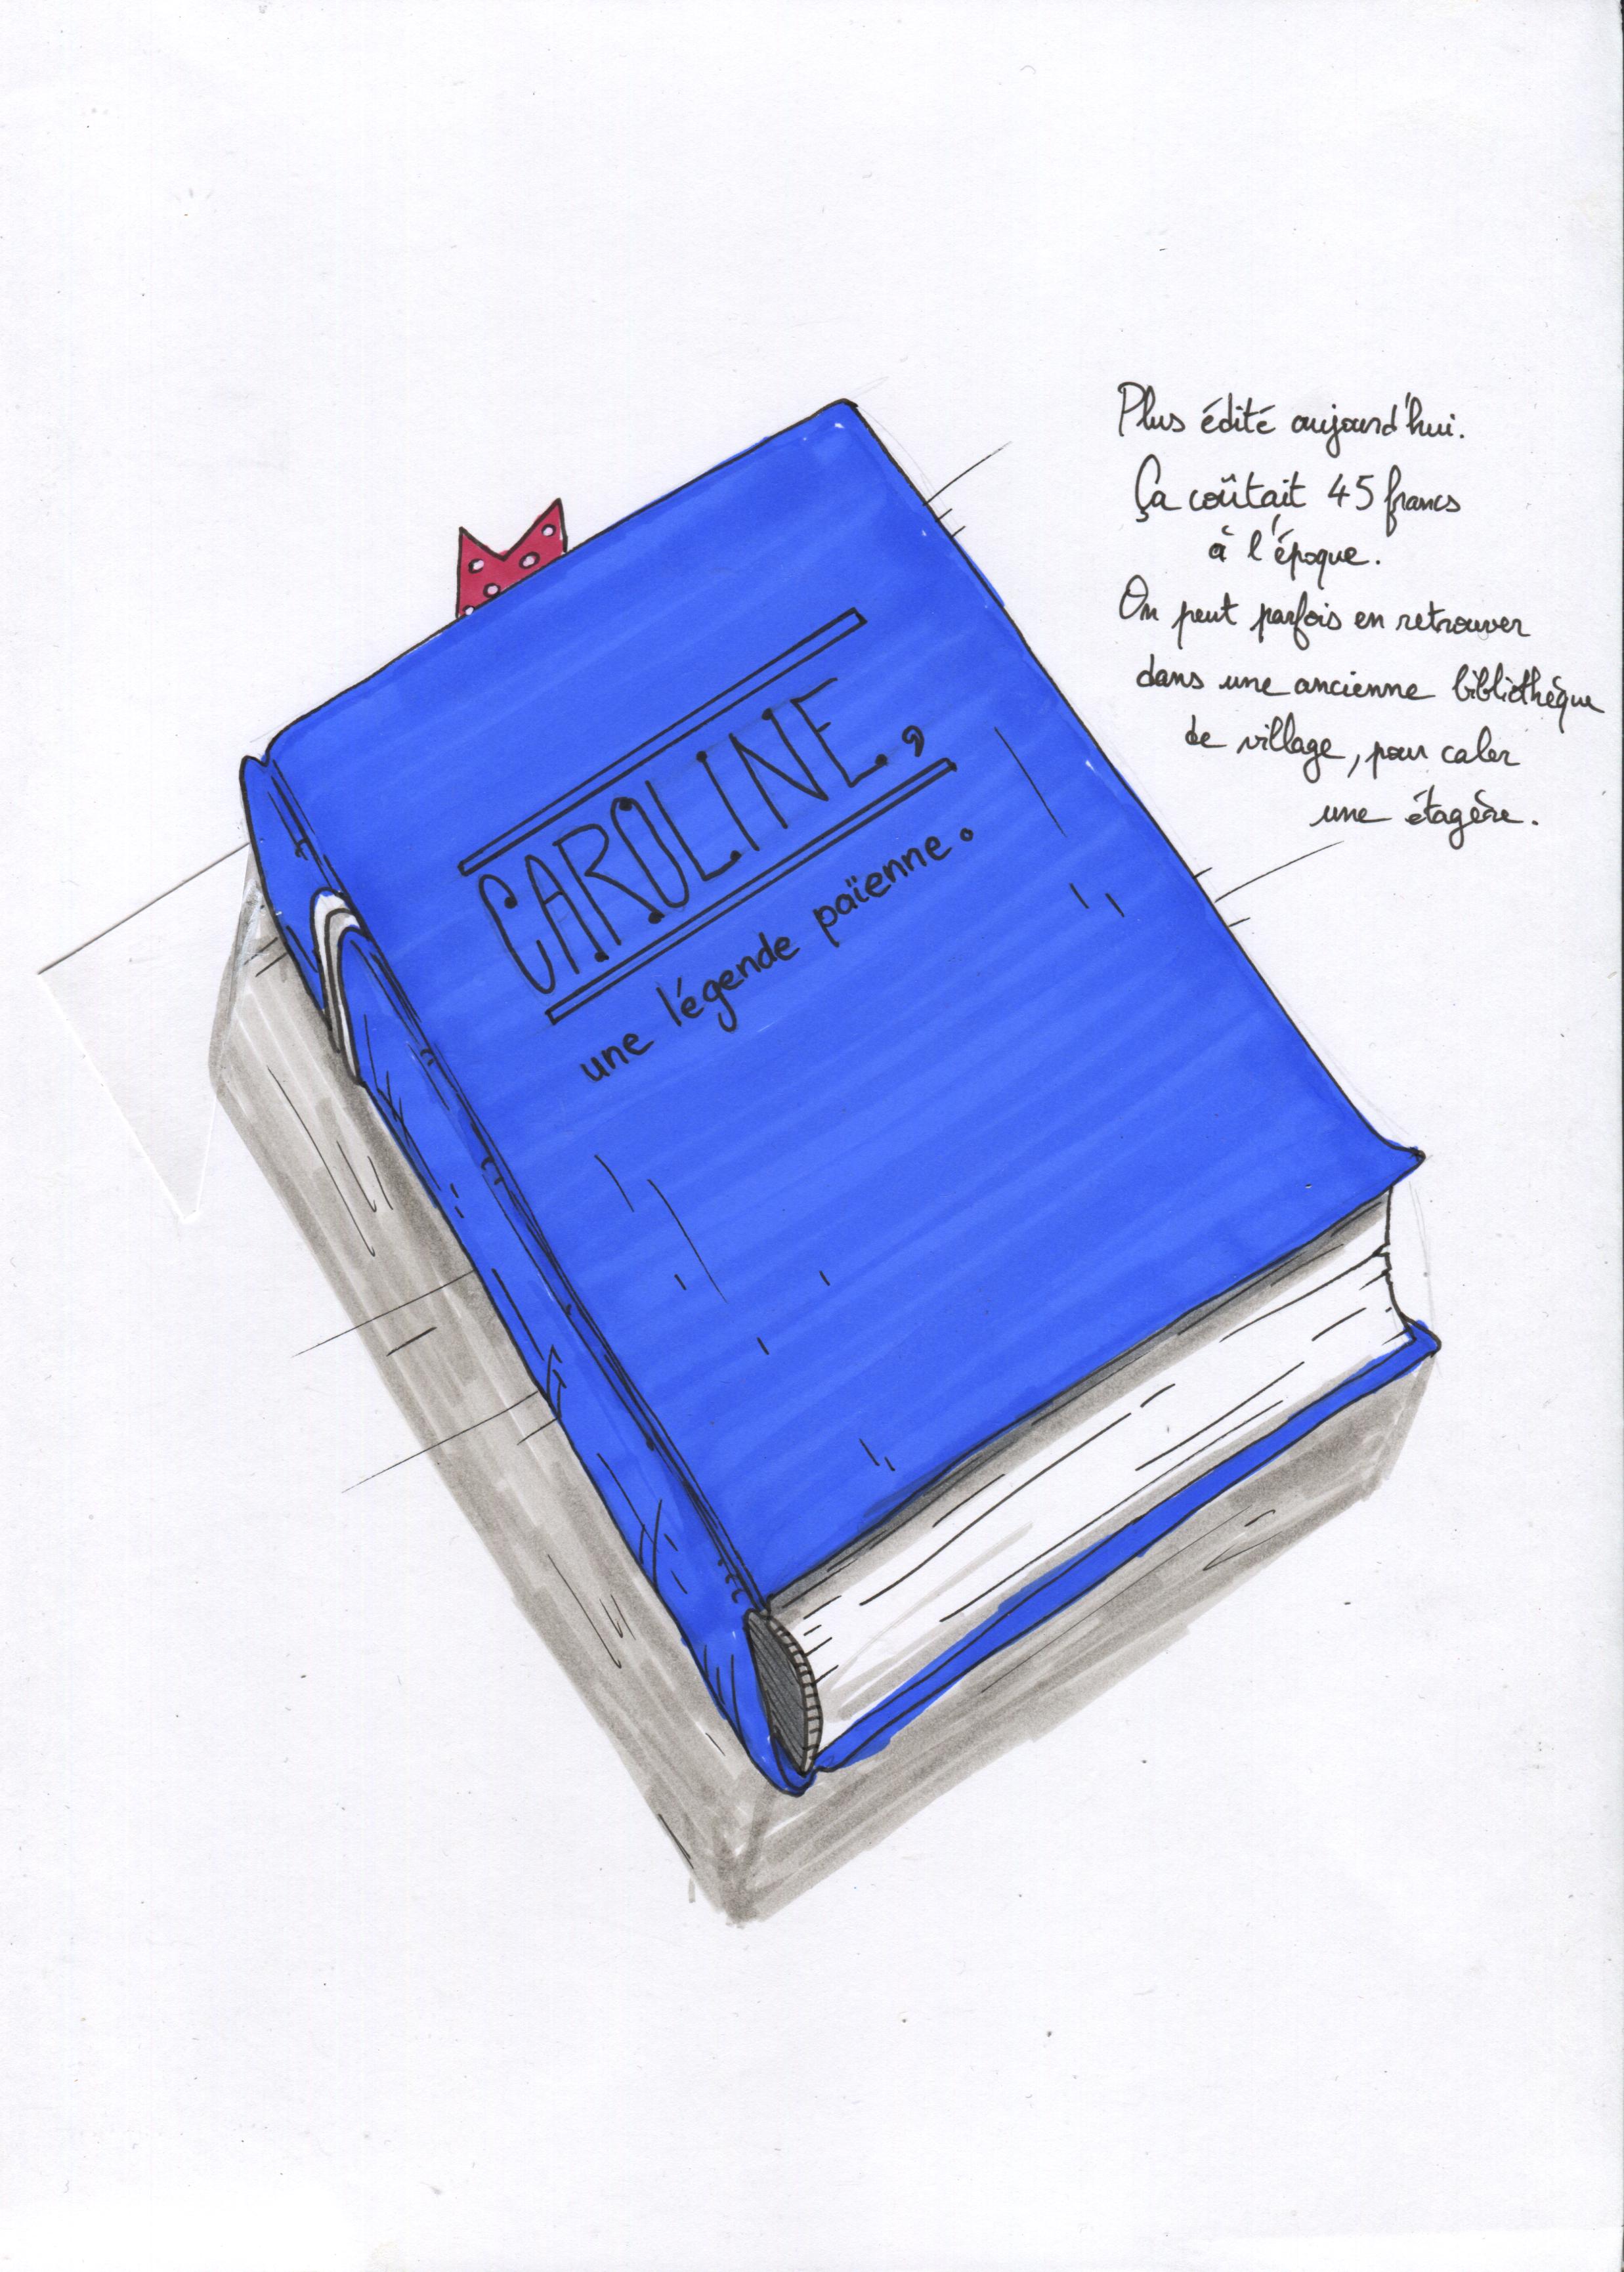 Plus édité aujourd'hui.
Ça coûtait 45 francs
à l'époque.
On peut parfois en retrouver
dans une ancienne bibliothèque
de village, pour caler
une étagère.
CAROLINE,
une légende païenne.